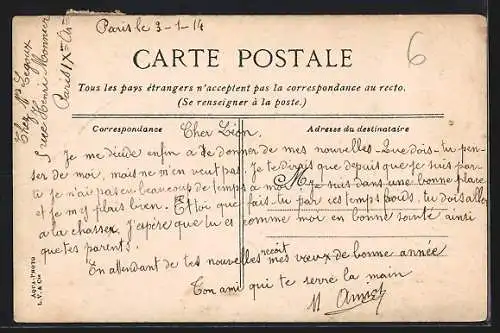 Paris le 3-1-14
6
CARTE POSTALE
Tous les pays étrangers n'acceptent pas la correspondance au recto.
(Se renseigner à la poste.)
Correspondance
Adresse du destinataire
Cher Léon.
Je me décide enfin à te donner de mes nouvelles. Que dois-tu pen-
ser de moi, mais ne m'en veut pas. Je te dirais que depuis que je suis par-
ti je n'ai pas eu beaucoup de temps à moi. Je suis dans une bonne place
et je m'y plais bien. Et toi que fais-tu par ces temps froids, tu dois aller
à la chasse. J'espère que tu es comme moi en bonne santé ainsi
que tes parents.
En attendant de tes nouvelles reçoit mes vœux de bonne année
Ton ami qui te serre la main
Chez Mr
5 rue Henri Monnier
Paris IXe Arr
AQUA-PHOTO
L. V. & Cie